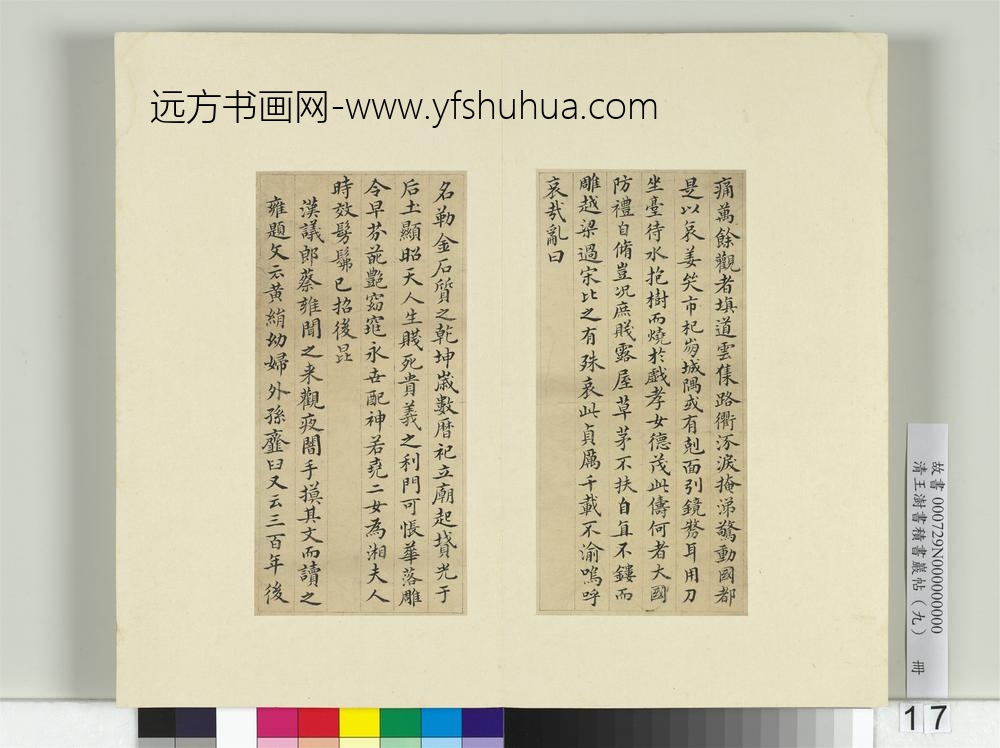 远方书画网-www.yfshuhua.com
痛萬餘觀者填道雲集路衢泺淚掩涕驚動國都
是以哀姜哭市杞崩城隅或有剋面引鏡剺耳用刀
坐臺待水抱樹而燒於戲孝女德茂此儔何者大國
防禮自脩豈况庶賤露屋草茅不扶自直不鏤而
雕越梁過宋比之有殊哀此貞厲千載不渝嗚呼
哀哉亂曰
名勒金石質之乾坤歲數曆祀立廟起墳光于
后土顯昭天人生賤死貴義之利門可悵華落雕
令早芬葩艷窈窕永世配神若堯二女為湘夫人
時效髣髴已招後昆
漢議郎蔡雍聞之来觀夜闇手摸其文而讀之
雍題文云黃絹幼婦外孫齏臼又云三百年後
故書 000729N000000000
清王澍書積書巖帖（九） 冊
17